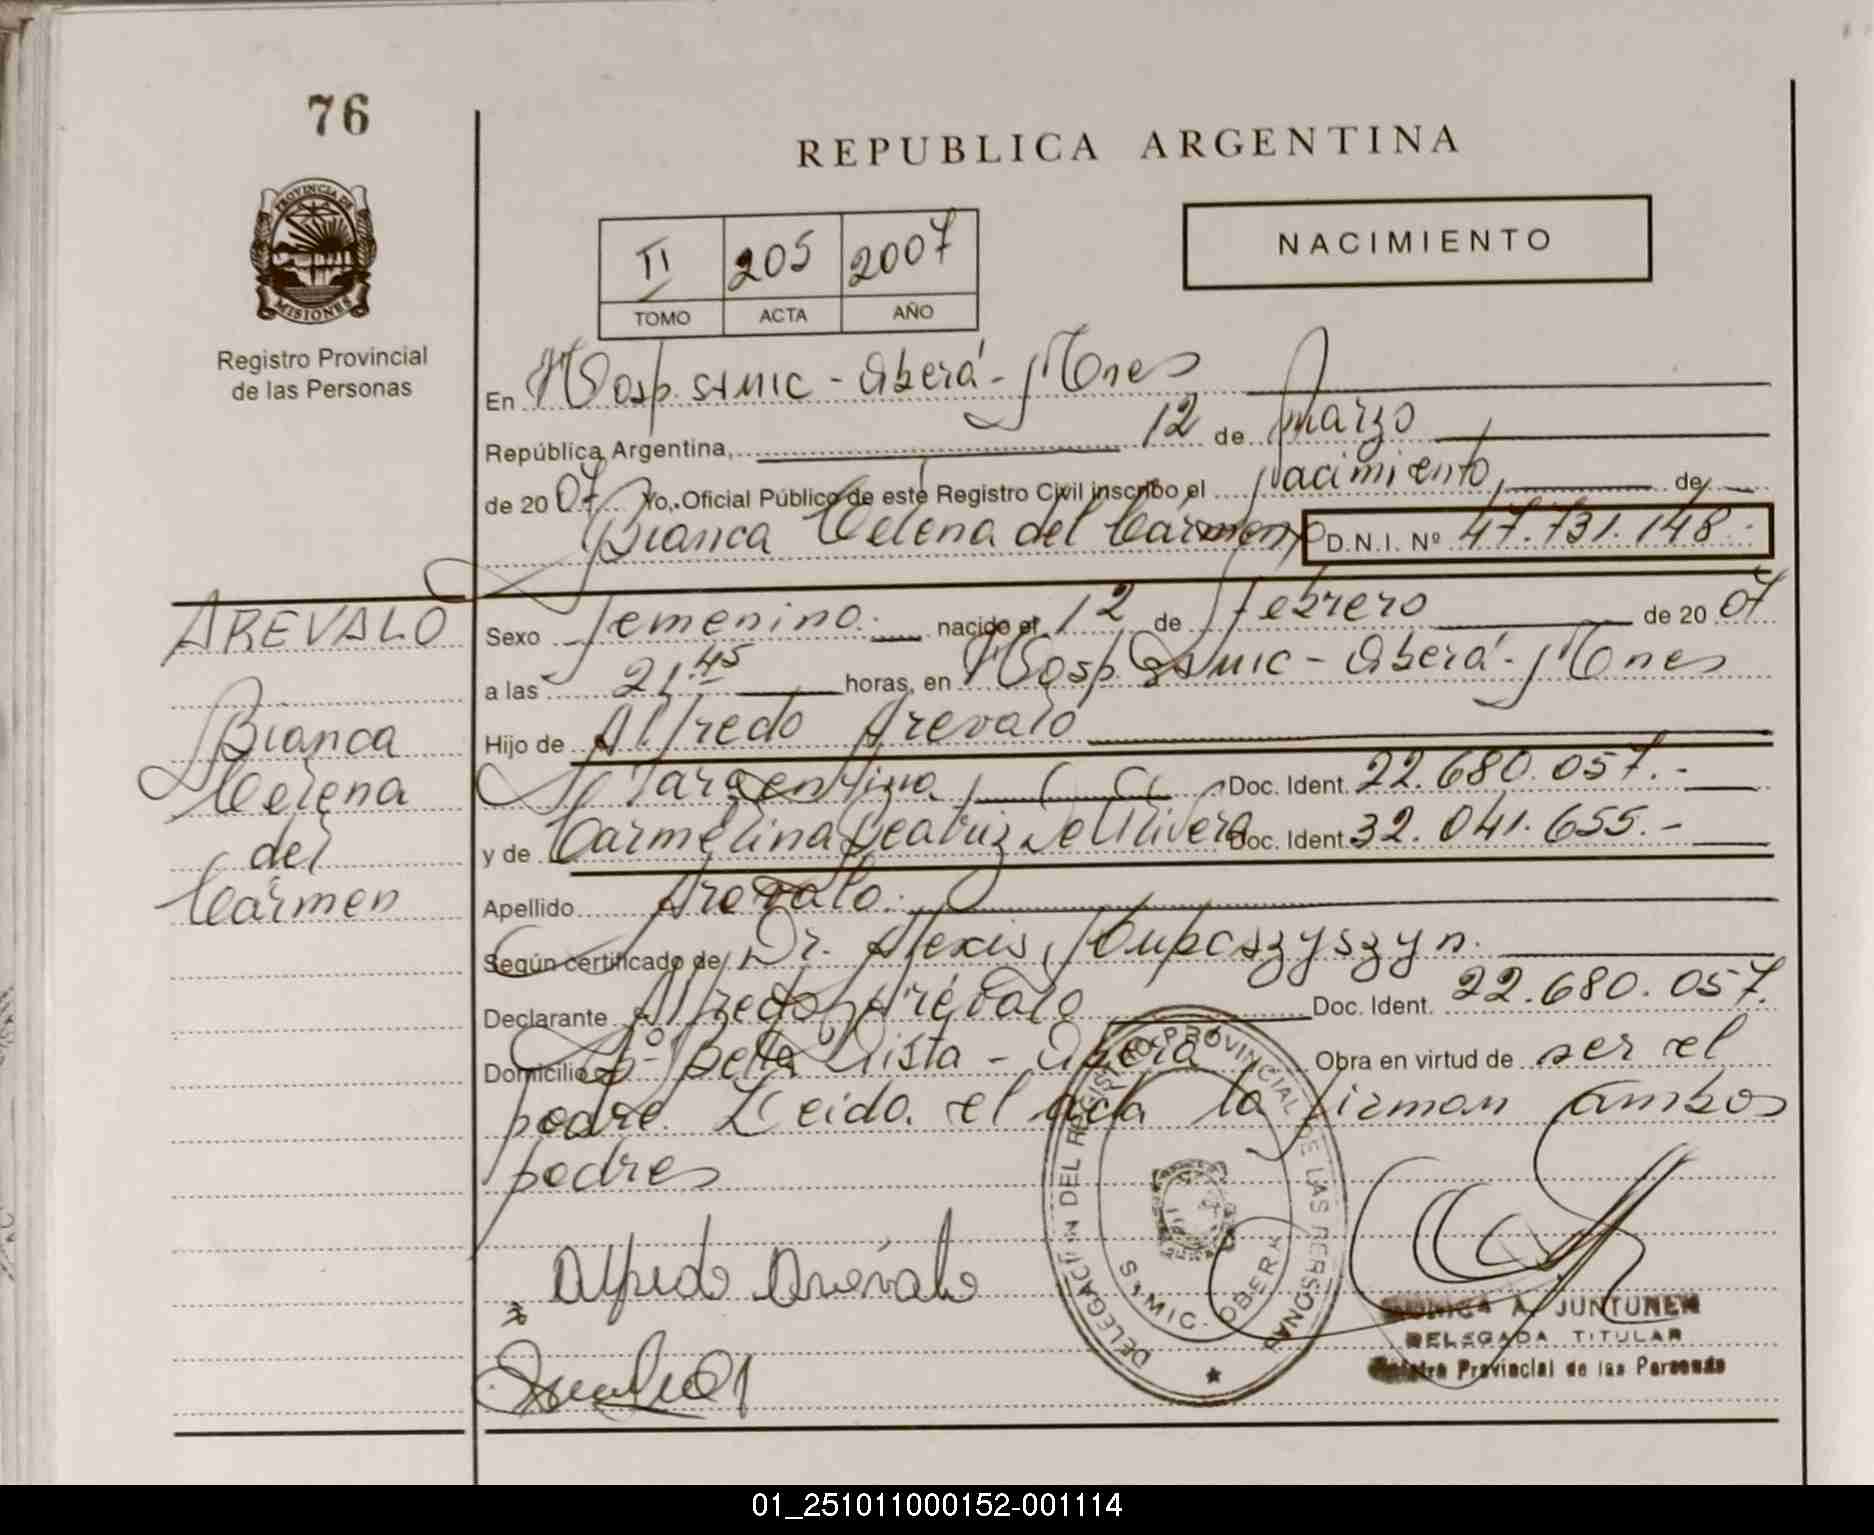 76
REPUBLICA ARGENTINA
PROVINCIA DE
MISIONES
Registro Provincial
de las Personas
II 205 2007
TOMO ACTA AÑO
NACIMIENTO
En Hosp. SAMIC - Oberá - Mnes
República Argentina, 12 de marzo
de 2007 Yo, Oficial Público de este Registro Civil inscribo el nacimiento de
Bianca Celena del Cármen D.N.I. Nº 47.731.148.
AREVALO
Bianca
Celena
del
Cármen
Sexo femenino. nacido el 12 de febrero de 2007
a las 21.45 horas, en Hosp. SAMIC - Oberá - Mnes
Hijo de Alfredo Arevalo
argentina Doc. Ident. 22.680.057.-
y de Carmelina Beatriz Doc. Ident. 32.041.655.-
Apellido Arevalo.
Según certificado de Dr. Alexis
Declarante Alfredo Arévalo Doc. Ident. 22.680.057.
Domicilio Bº Bella Vista - Oberá Obra en virtud de ser el
padre. Leida el acta la firman ambos
padres
Alfredo Arévalo
DELEGACIÓN DEL REGISTRO PROVINCIAL DE LAS PERSONAS
SAMIC. OBERA
MONICA A. JUNTUNEN
DELEGADA TITULAR
Registro Provincial de las Personas
01_251011000152-001114